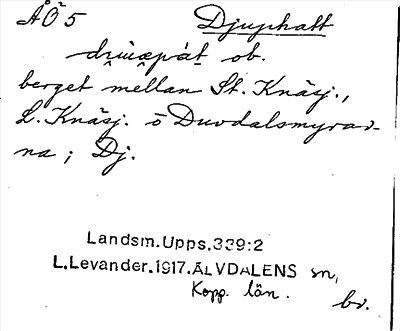 ÅÖ 5 Djuphatt
ob.
berget mellan St. Knäsj.,
L. Knäsj. o Duvdalsmyrar-
na; Dj.
Landsm.Upps.339:2
L.Levander.1917.ÄLVDALENS sn,
Kopp. län.
bv.